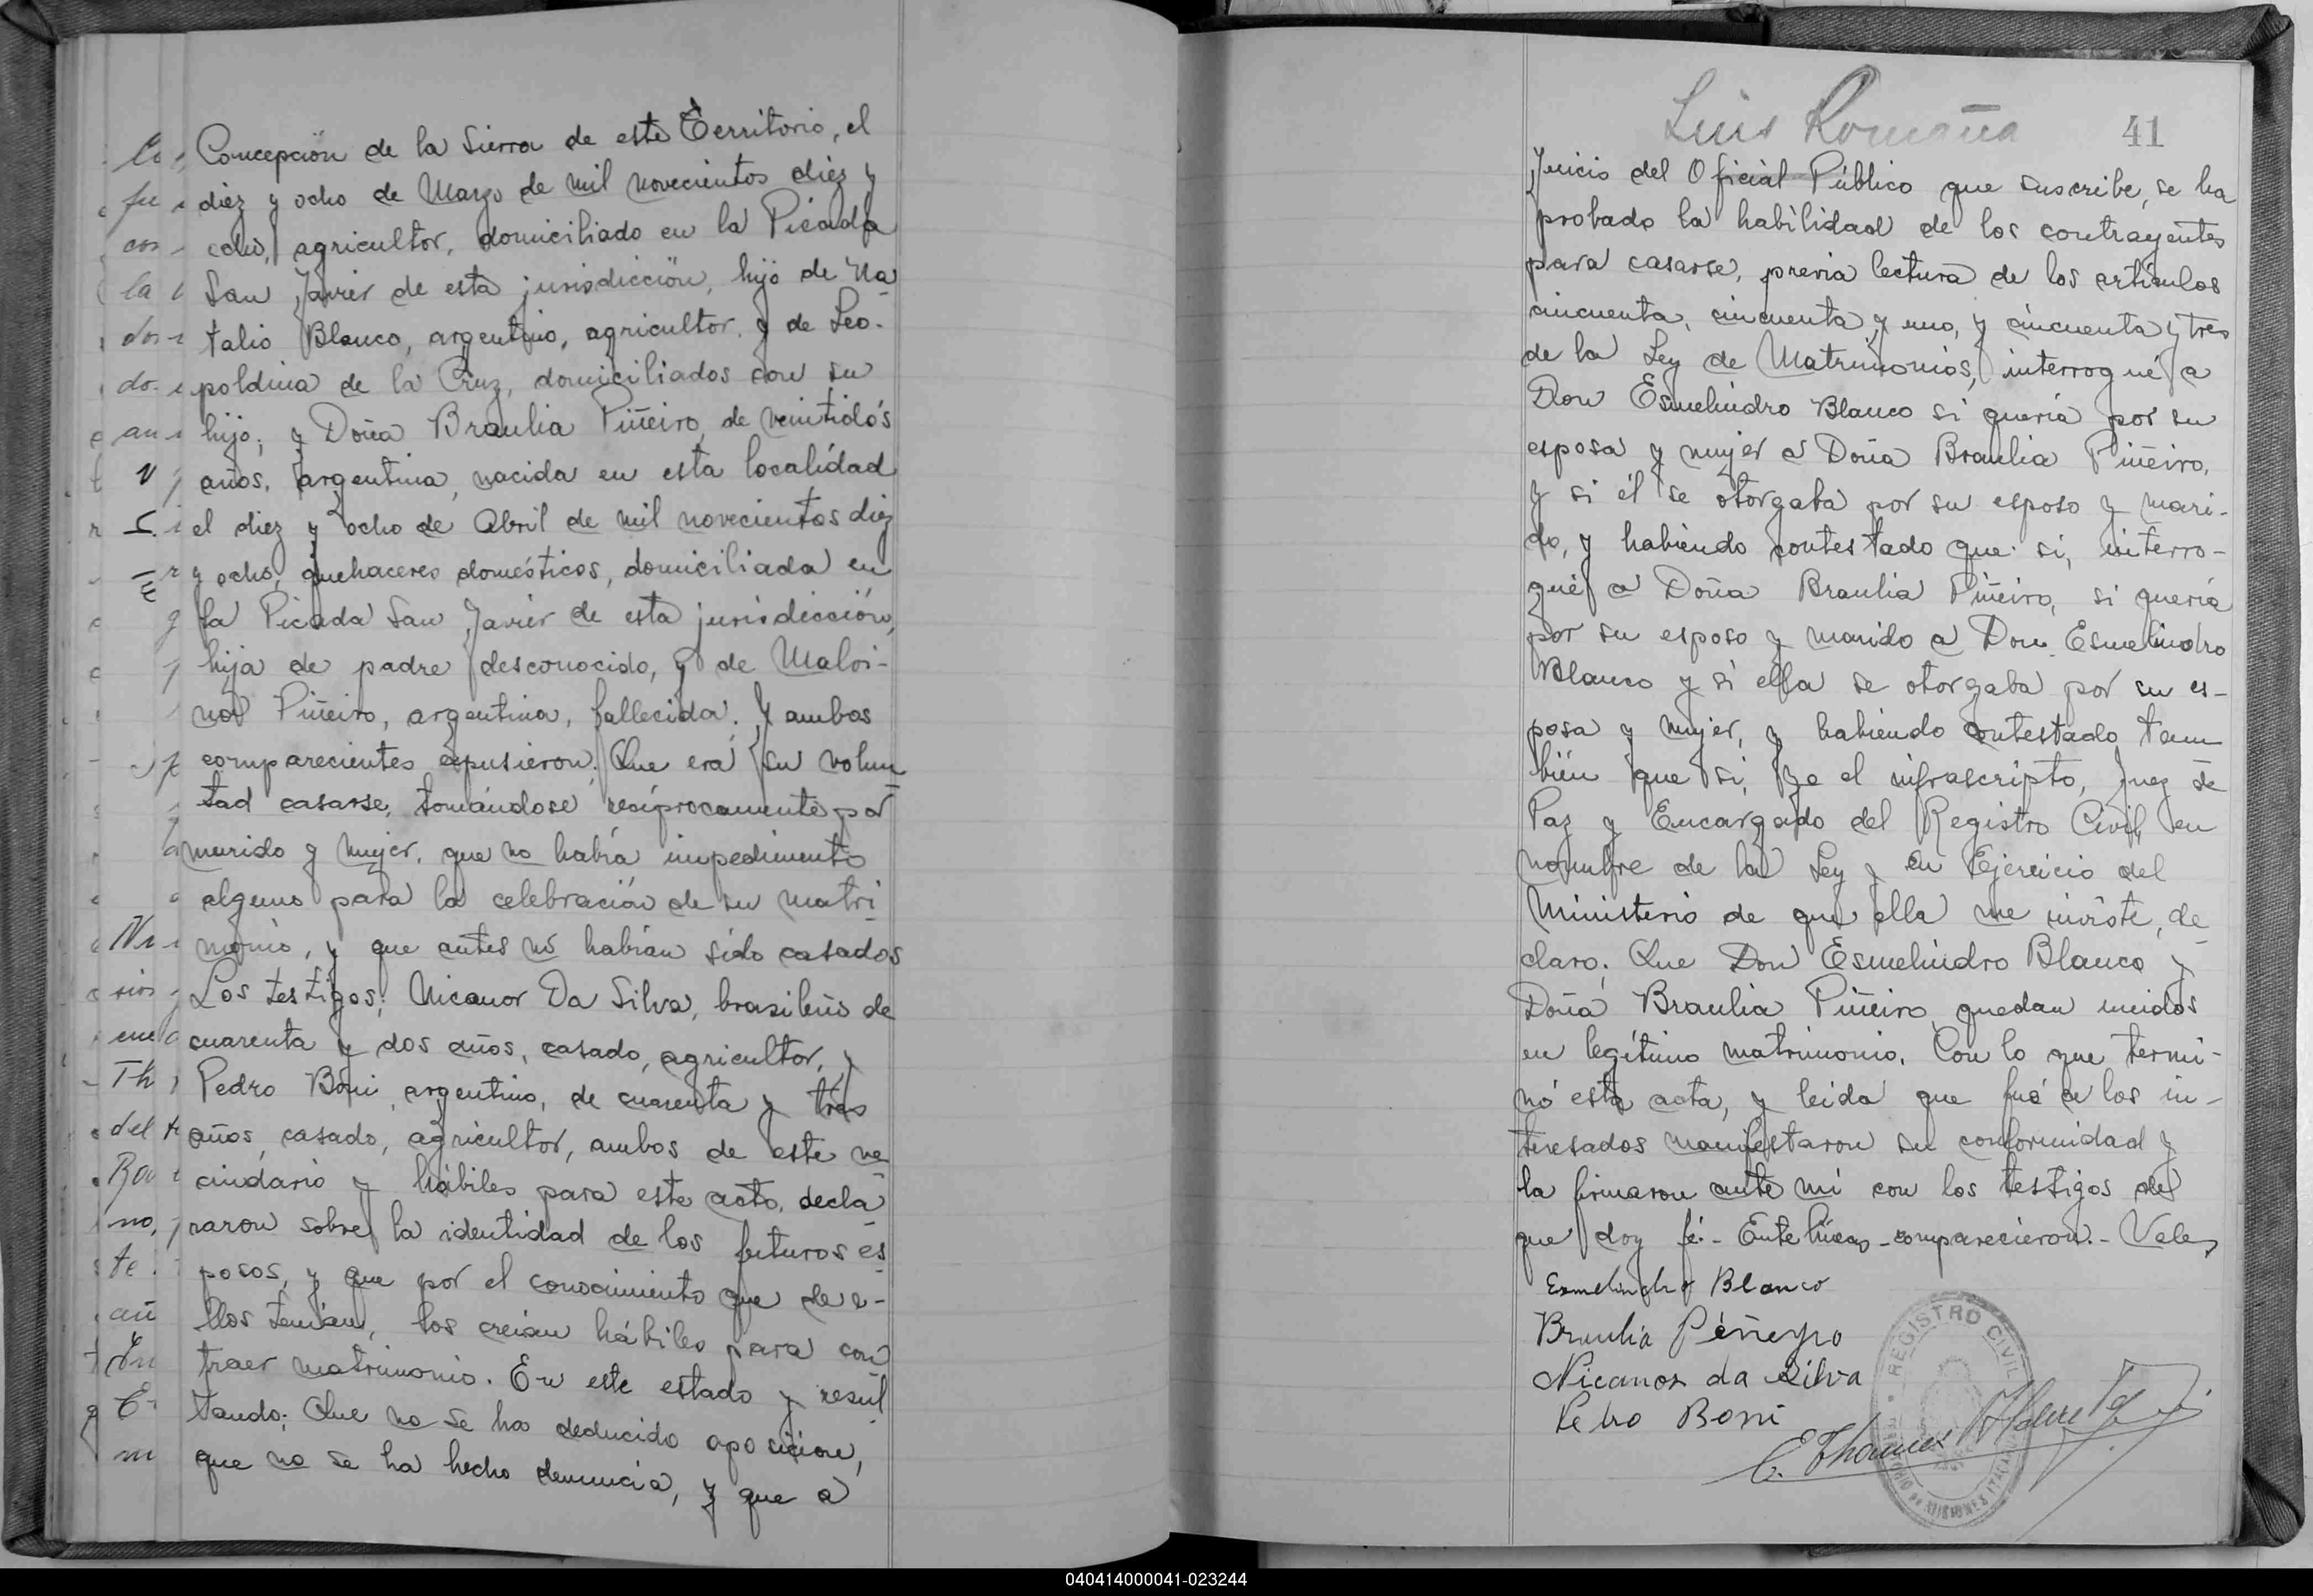 Concepción de la Sierra de este Territorio, el
diez y ocho de Marzo de mil novecientos diez y
ocho, agricultor, domiciliado en la Picada
San Javier de esta jurisdicción, hijo de Na
talio Blanco, argentino, agricultor, y de Leo-
poldina de la Cruz, domiciliados con su
hijo; y Doña Braulia Piñeiro, de veintidós
años, argentina, nacida en esta localidad
el diez y ocho de Abril de mil novecientos diez
y ocho, quehaceres domésticos, domiciliada en
la Picada San Javier de esta jurisdicción,
hija de padre desconocido, y de Malvi-
na Piñeiro, argentina, fallecida. Y ambos
comparecientes expusieron: Que era su volun
tad casarse, tomándose recíprocamente por
marido y mujer, que no había impedimento
alguno para la celebración de su matri
monio, y que antes no habían sido casados
Los testigos; Nicanor Da Silva, brasileño de
cuarenta y dos años, casado, agricultor, y
Pedro Boni, argentino, de cuarenta y tres
años, casado, agricultor, ambos de este ve
cindario y hábiles para este acto, decla
raron sobre la identidad de los futuros es
posos, y que por el conocimiento que de e-
llos tenían, los creían hábiles para con
traer matrimonio. En este estado y resul
tando; Que no se ha deducido oposición,
que no se ha hecho denuncia, y que a
Luis Romaña
41
Juicio del Oficial Público que suscribe, se ha
probado la habilidad de los contrayentes
para casarse, previa lectura de los artículos
cincuenta, cincuenta y uno, y cincuenta y tres
de la Ley de Matrimonios, interrogué a
Don Esmelindro Blanco si quería por su
esposa y mujer a Doña Braulia Piñeiro,
y si él se otorgaba por su esposo y mari-
do, y habiendo contestado que si, interro-
gué a Doña Braulia Piñeiro, si quería
por su esposo y marido a Don Esmelindro
Blanco y si ella se otorgaba por su es-
posa y mujer, y habiendo contestado tam
bién que si, Yo el infrascripto, Juez de
Paz y Encargado del Registro Civil, en
nombre de la Ley y en Ejercicio del
Ministerio de que ella me inviste, de
claro: Que Don Esmelindro Blanco y
Doña Braulia Piñeiro quedan unidos
en legítimo matrimonio. Con lo que termi-
nó esta acta, y leida que fué a los in-
teresados manifestaron su conformidad y
la firmaron ante mí con los testigos de
que doy fé.- Entre líneas - comparecieron.- Vale,
Esmelindro Blanco
Braulia Piñeyro
Nicanor da Silva
Pedro Boni
REGISTRO CIVIL
040414000041-023244